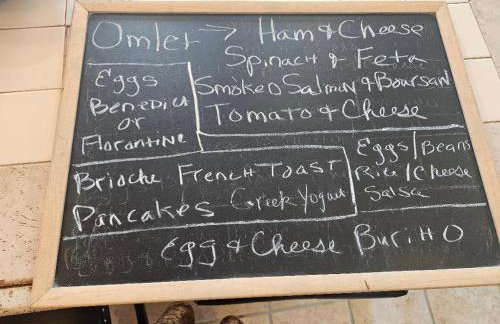 Omlet → Ham & Cheese
Spinach & Feta
Smoked Salmon & Boursan
Tomato & Cheese
Eggs
Benedict
or
Florantine
Brioche French Toast
Pancakes Greek Yogurt
Eggs/Beans
Rice/Cheese
Salsa
Egg & Cheese Burito